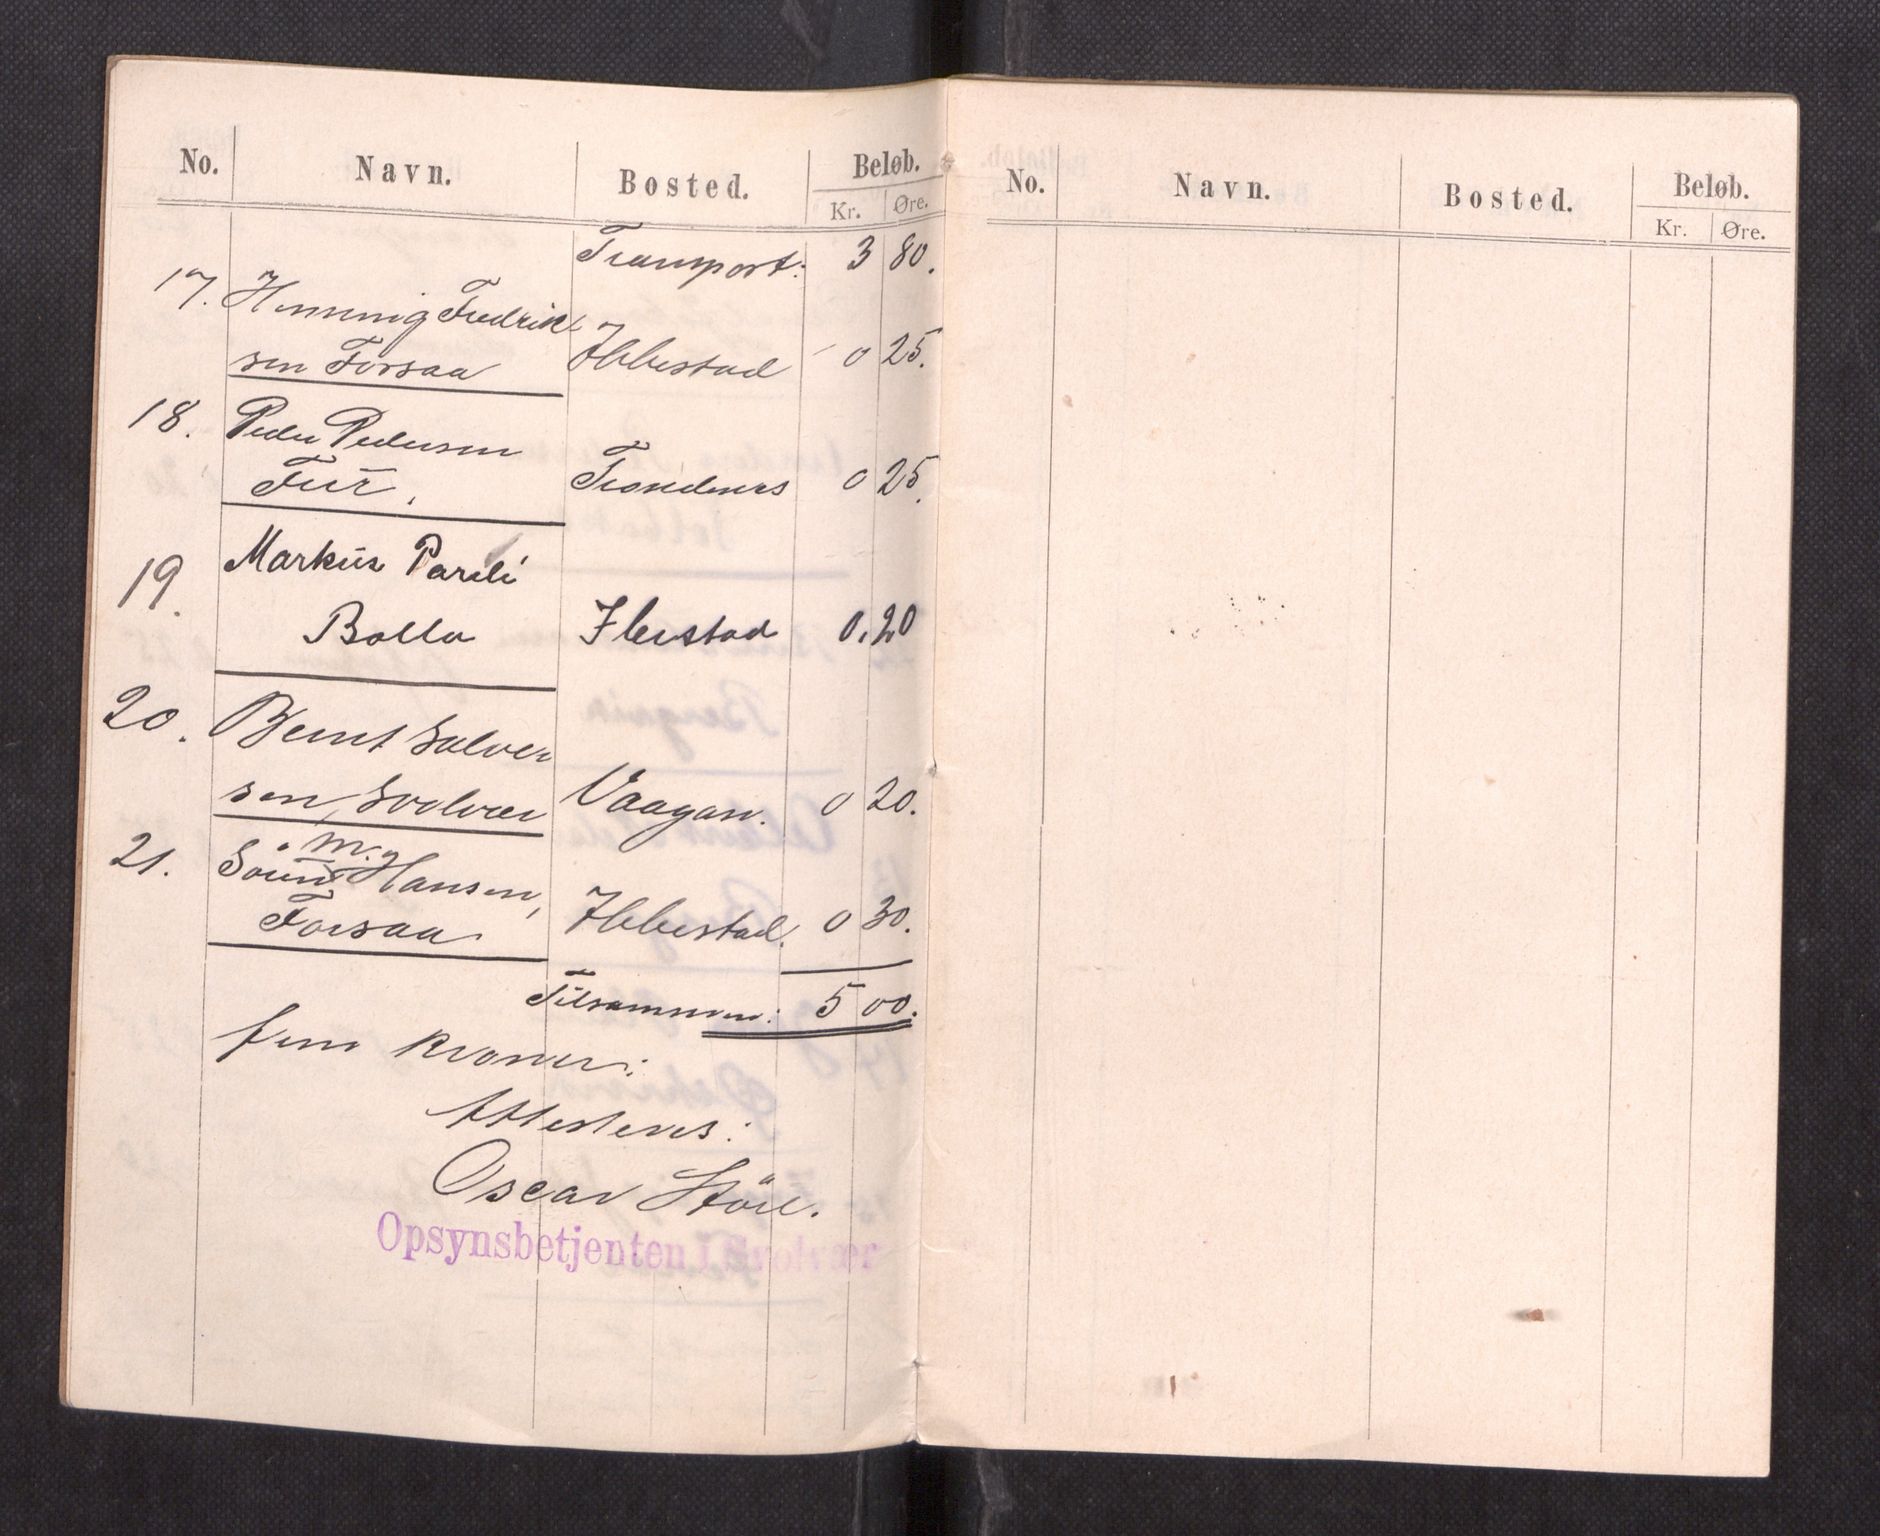 No. Navn. Bosted. Beløb.
Kr. Øre.
Transport: 3 80.
17. Henning Fredrik
sen Forsaa Ibbestad 0 25.
18. Peder Pedersen
Trondenes 0 25.
19. Markus Pareli
Bolla Ibestad 0.20
20. Bernt Solver
sen, Svolvær Vaagan. 0 20.
21. Sören M. Hansen,
Forsaa Ibbestad. 0 30.
Tilsammen: 5 00.
fem kroner:
Attesteres:
Oscar Störe.
Opsynsbetjenten i Svolvær
No. Navn. Bosted. Beløb.
Kr. Øre.